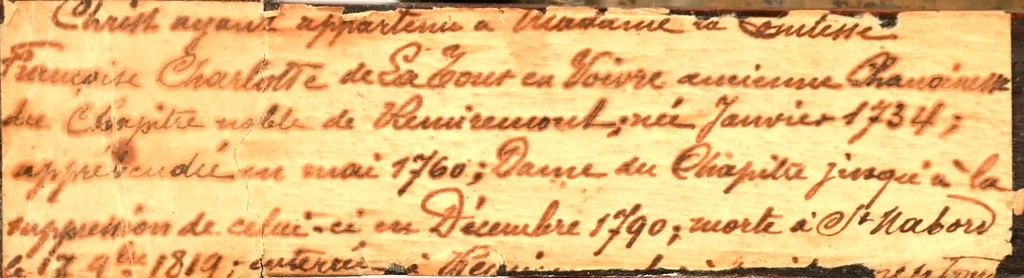 Christ ayant appartenu à Madame la Comtesse
Françoise Charlotte de La Tour en Voivre ancienne Chanoinesse
du Chapitre noble de Remiremont; née Janvier 1734;
appréhendée en mai 1760; Dame du Chapitre jusqu'à la
suppression de celui-ci en Décembre 1790; morte à St Nabord
le 17 9bre 1819; enterrée à